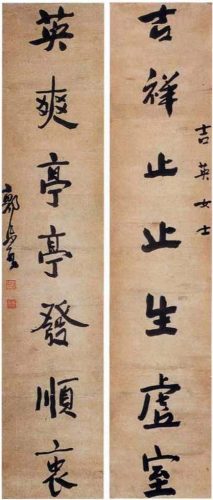 吉英女士
吉祥止止生虚室
英爽亭亭發順衷